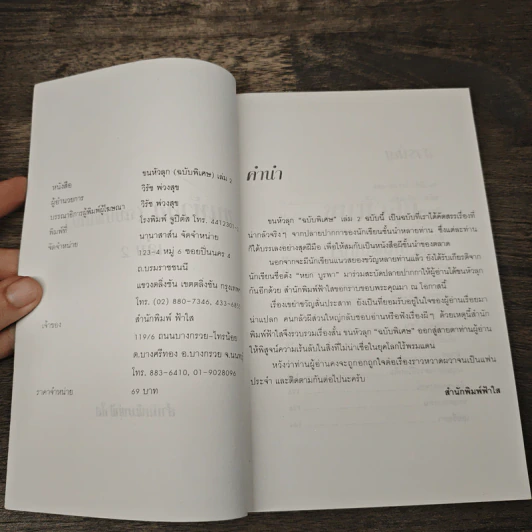 หนังสือ ขนหัวลุก (ฉบับพิเศษ) เล่ม 2
ผู้อำนวยการ วิรัช พ่วงสุข
บรรณาธิการผู้พิมพ์ผู้โฆษณา วิรัช พ่วงสุข
พิมพ์ที่ โรงพิมพ์ จูปิตัส โทร.
จัดจำหน่าย นานาสาส์น จัดจำหน่าย
323-4 หมู่ 6 ซอยปิ่นนคร 4
ถ.บรมราชชนนี
แขวงตลิ่งชัน เขตตลิ่งชัน
โทร. (02) 880-7346,
เจ้าของ สำนักพิมพ์ ฟ้าใส
119/6 ถนนบางกรวย-ไทรน้อย
ต.บางศรีทอง อ.บางกรวย
โทร. 883-6410, 01-9028096
ราคาจำหน่าย 69 บาท
คำนำ
ขนหัวลุก "ฉบับพิเศษ" เล่ม 2 ฉบับนี้ เป็นฉบับที่เราได้คัดสรรเรื่องที่
น่ากลัวจริงๆ จากปลายปากกาของนักเขียนชั้นนำหลายท่าน ซึ่งแต่ละท่าน
ก็ได้บรรเลงอย่างสุดฝีมือ เพื่อให้สมกับเป็นหนังสือผีชั้นนำของตลาด
นอกจากจะมีนักเขียนแนวสยองขวัญหลายท่านแล้ว ยังได้รับเกียรติจาก
นักเขียนชื่อดัง "หยก บูรพา" มาร่วมสะบัดปลายปากกาให้ผู้อ่านได้ขนหัวลุก
กันอีกด้วย สำนักพิมพ์ฟ้าใสขอกราบขอบพระคุณมา ณ โอกาสนี้
เรื่องเขย่าขวัญสั่นประสาท ยังเป็นที่ยอมรับอยู่ในใจของผู้อ่านเรื่อยมา
น่าแปลก คนกลัวผีส่วนใหญ่กลับชอบอ่านหรือฟังเรื่องผีๆ ด้วยเหตุนี้สำนัก
พิมพ์ฟ้าใสจึงรวบรวมเรื่องสั้น ขนหัวลุก "ฉบับพิเศษ" ออกสู่สายตาท่านผู้อ่าน
ให้พิสูจน์ความเร้นลับในสิ่งที่ไม่น่าเชื่อในยุคโลกไร้พรมแดน
หวังว่าท่านผู้อ่านคงจะถูกอกถูกใจต่อเรื่องราวหวาดผวาจนเป็นแฟน
ประจำ และติดตามกันต่อไปนะครับ
สำนักพิมพ์ฟ้าใส